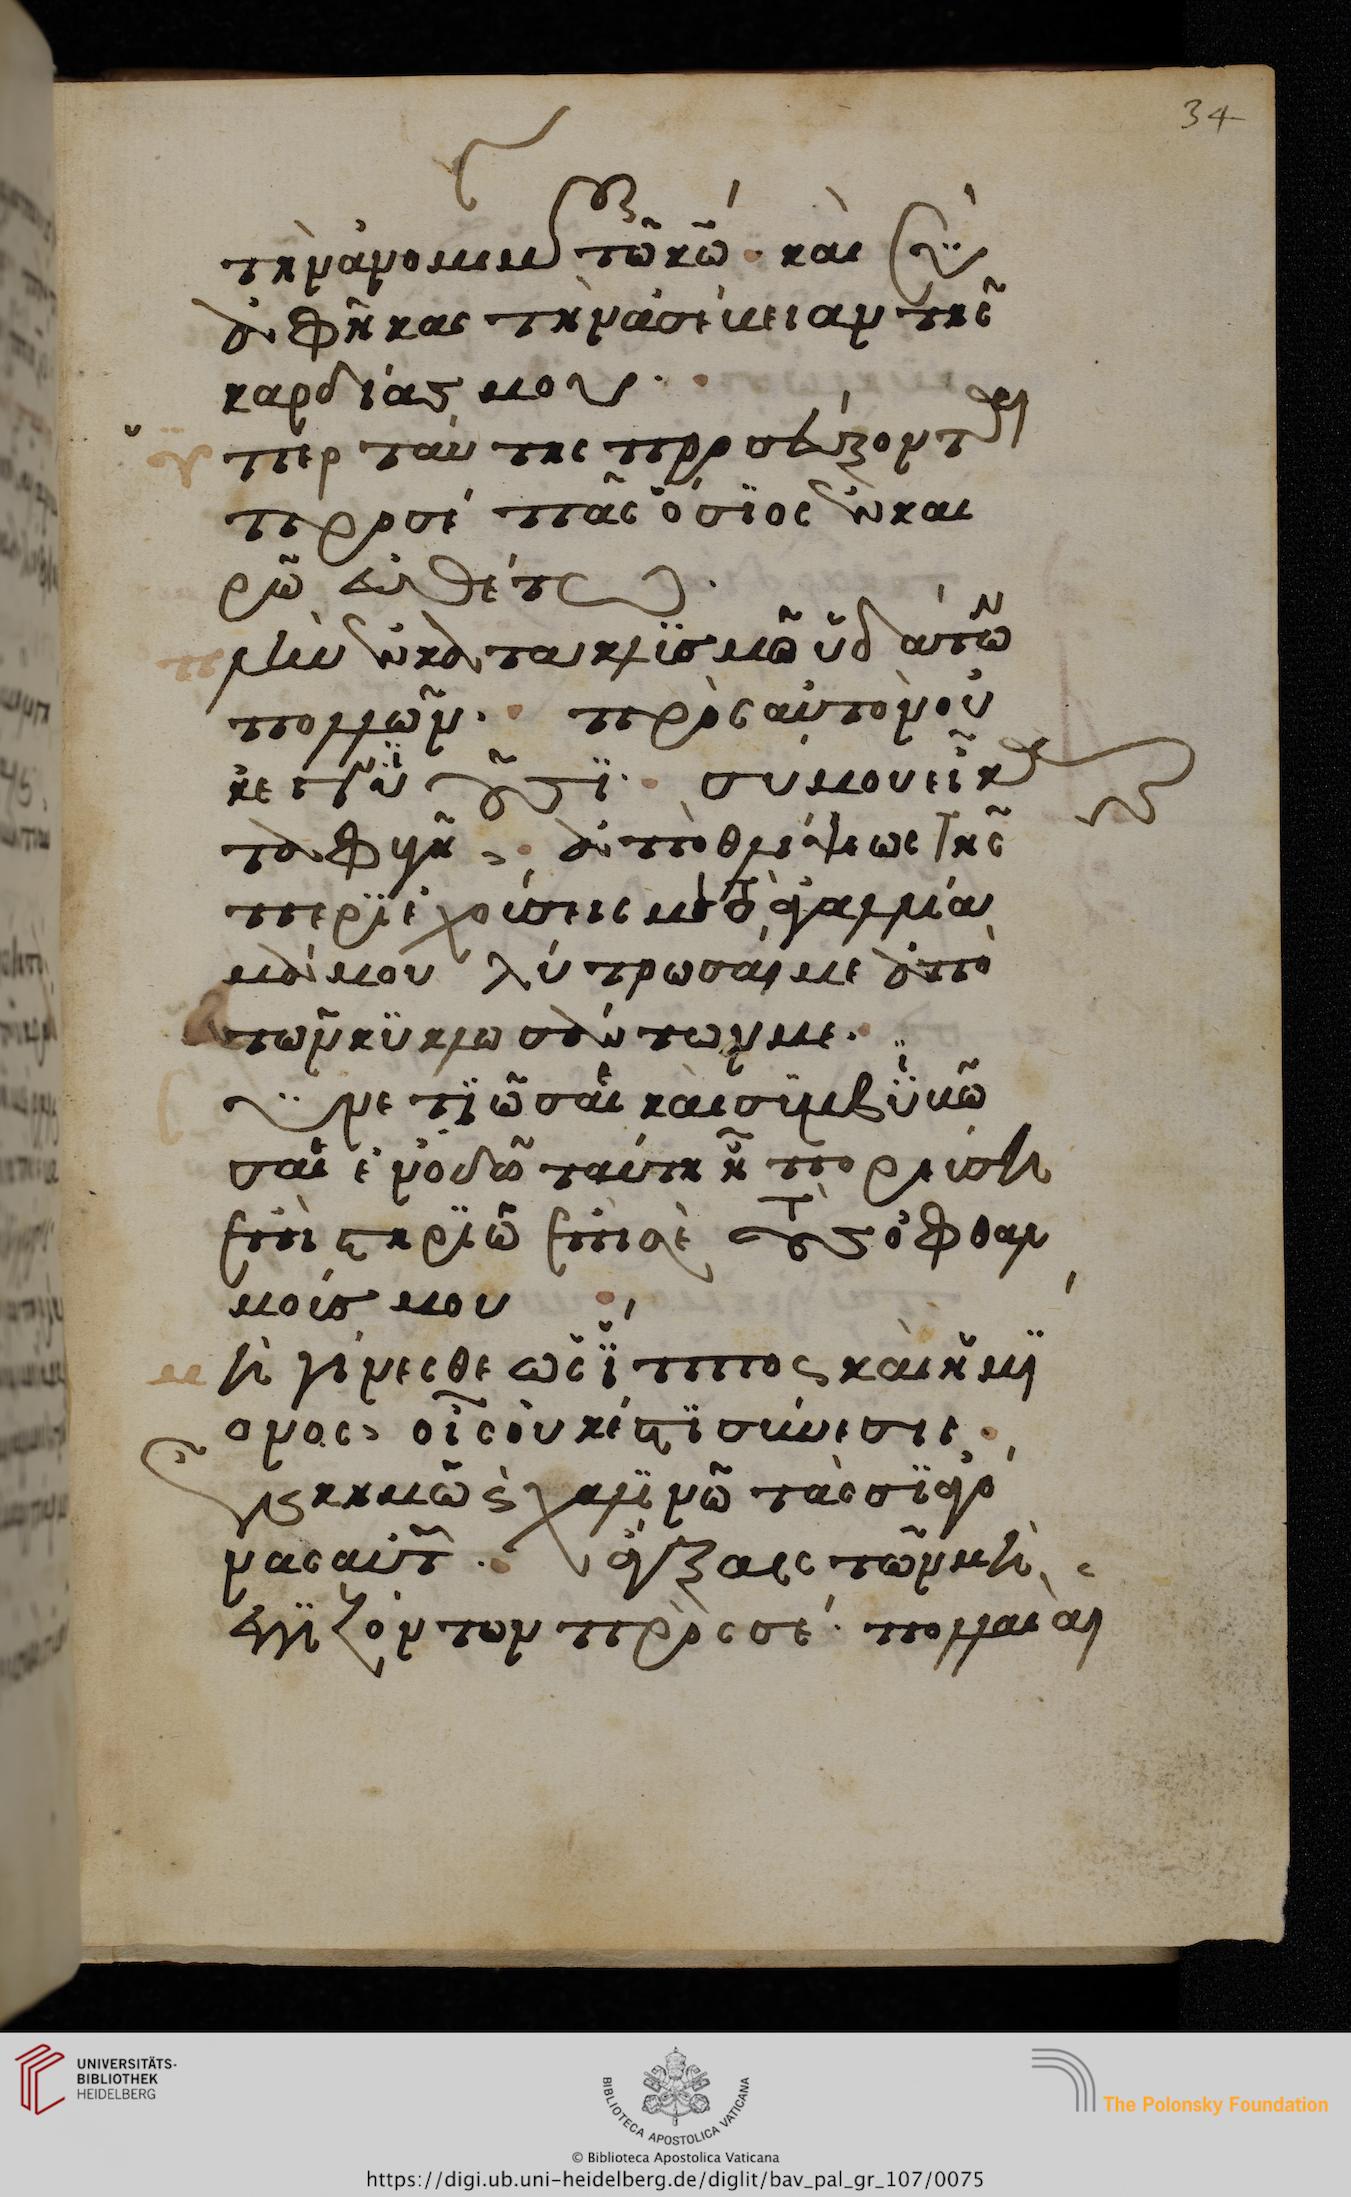 34
τὴν ἀνομίαν τῶ κῶ · καὶ σὺ
ἀφῆκας τὴν ἀσέβειαν τῆς
καρδίας μου.
ὑπερ ταύτης προσεύξονται
προσέ πᾶς ὅσϊος ἐν και
ρῶ εὐθέτω.
πλὴν ἐν κατακλϊσμῶ ὑδάτων
πολλῶν. πρὸς αὐτὸν οὐ
κ σύ μου εἶ κα
ταφυγῆ. ἀπὸ θλίψεως τῆς
περϊεχούσεις με τὸ ἀγαλλία
μά μου λύτρωσαί με ἀπὸ
τῶν κϋκλωσάντων με.
συνετϊῶ σαι καὶ σϊμβϊβῶ
σαι ἐν ὁδῶ ταύτη ἧ πορεύση
ἐπιστηρϊῶ ἐπὶ σὲ τοὺς ὀφθαλ
μούς μου
μὴ γίνεσθε ὡς ἵππος καὶ ἡμϊ
ονος, οἷς οὐκ ἔστϊ σύνεσις.
ἐν κημῶ κ χαλϊνῶ τὰς σϊαγό
νας αὐτῶν. ἄγξαις τῶν μὴ
ἐγγϊζόντων πρὸς σέ. πολλαὶ αἱ
UNIVERSITÄTS-
BIBLIOTHEK
HEIDELBERG
BIBLIOTECA APOSTOLICA VATICANA
The Polonsky Foundation
© Biblioteca Apostolica Vaticana
https://digi.ub.uni-heidelberg.de/diglit/bav_pal_gr_107/0075